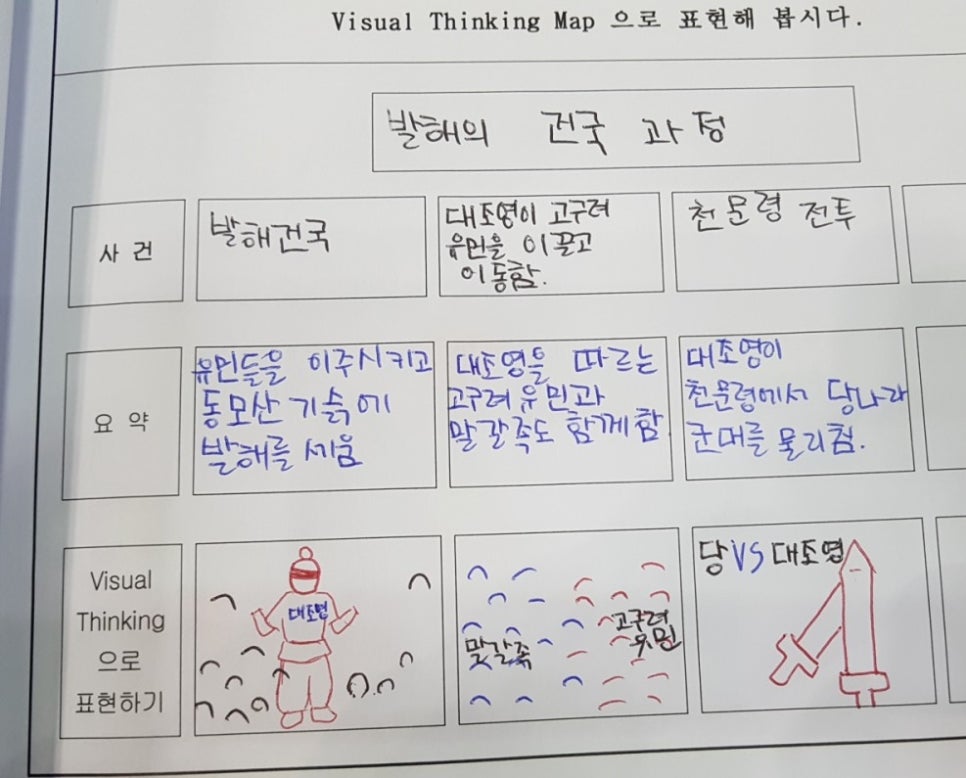 Visual Thinking Map 으로 표현해 봅시다.
발해의 건국 과정
사 건
발해건국
대조영이 고구려
유민을 이끌고
이동함.
천문령 전투
요 약
유민들을 이주시키고
동모산 기슭에
발해를 세움
대조영을 따르는
고구려 유민과
말갈족도 함께함
대조영이
천문령에서 당나라
군대를 물리침.
Visual
Thinking
으로
표현하기
대조영
말갈족
고구려
유민
당 VS 대조영